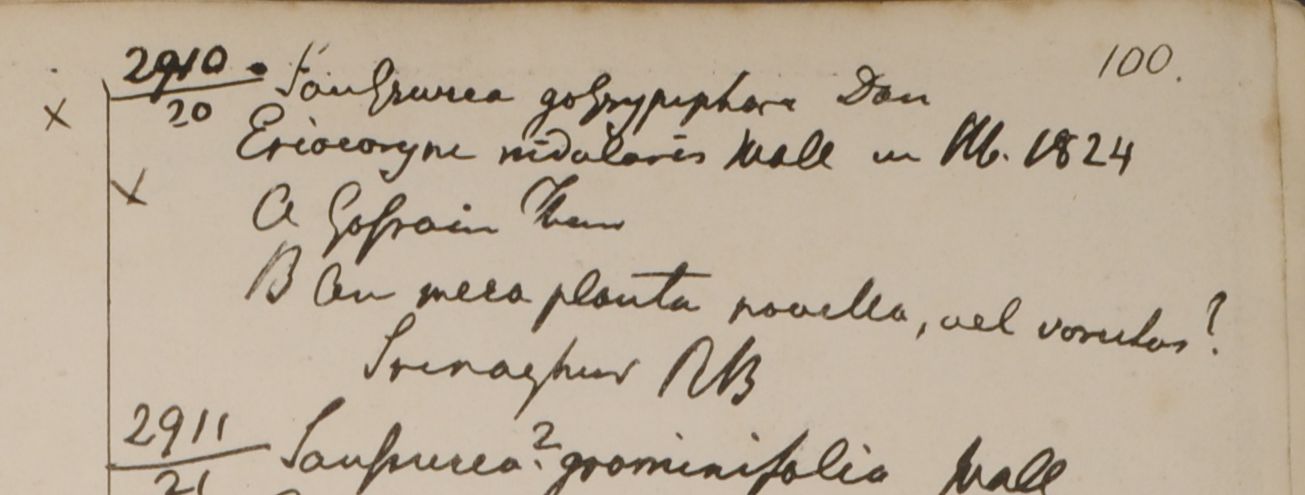 100.
2910. Saussurea gossypiphora Don
20
Eriocoryne nidularis Wall in Hb. 1824
A Gossain Than
B An mera planta novella, vel varietas?
Srinaghur RB
2911 Saussurea? graminifolia Wall
21